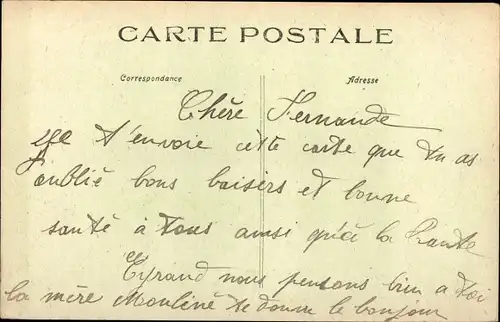 CARTE POSTALE
Correspondance
Adresse
Chère Fernande
Je t'envoie cette carte que tu as
oublié bons baisers et bonne
santé à tous ainsi qu'à la
nous pensons bien a toi
la mère Mouliné te donne le bonjour